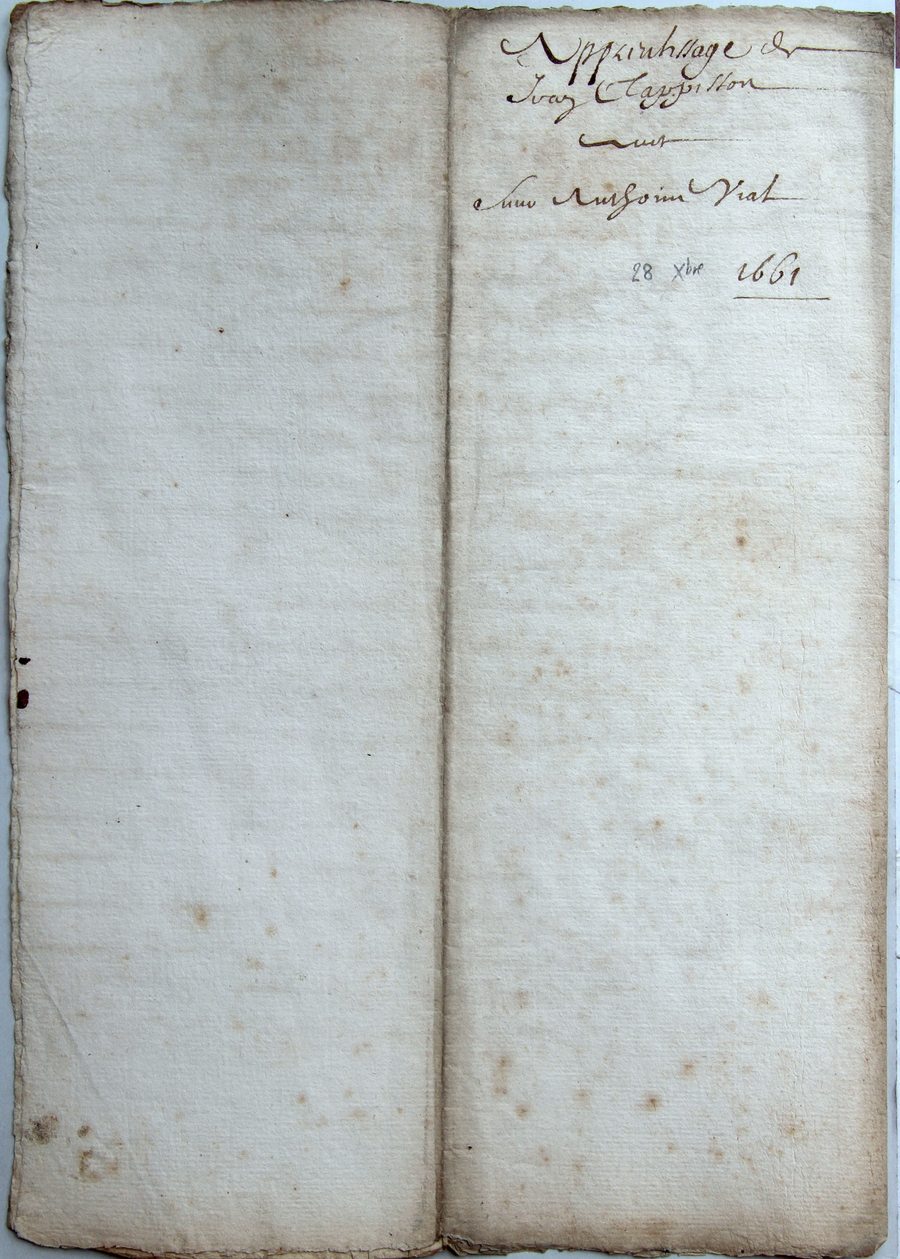 Apprentissage de
Jean Clappisson
avec
Sieur Anthoine Vial
28 Xbre 1661